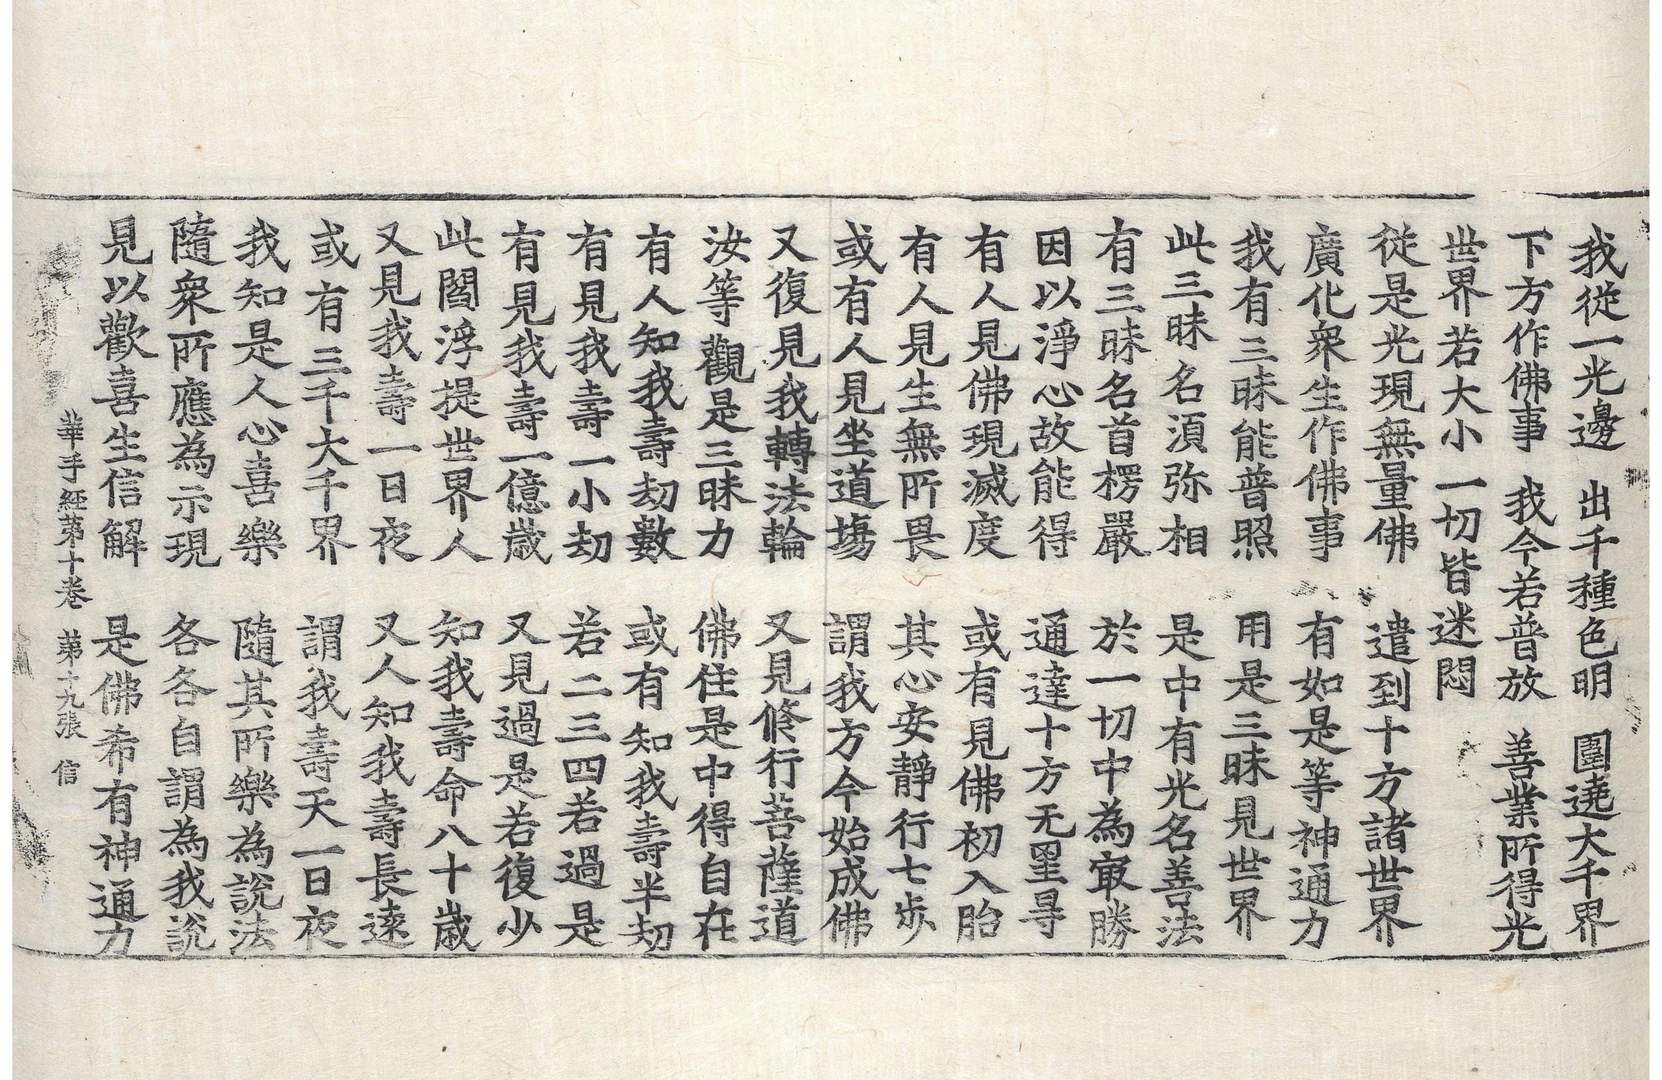 我從一光邊　出千種色明　圍遶大千界
下方作佛事　我今若普放　善業所得光
世界若大小　一切皆迷悶
從是光現無量佛　遣到十方諸世界
廣化衆生作佛事　有如是等神通力
我有三昧能普照　用是三昧見世界
此三昧名須弥相　是中有光名善法
有三昧名首楞嚴　於一切中為㝡勝
因以淨心故能得　通達十方无罣㝵
有人見佛現滅度　或有見佛初入胎
有人見生無所畏　其心安靜行七步
或有人見坐道塲　謂我方今始成佛
又復見我轉法輪　又見修行菩薩道
汝等觀是三昧力　佛住是中得自在
有人知我壽劫數　或有知我壽半劫
有見我壽一小劫　若二三四若過是
有見我壽一億歲　又見過是若復少
此閻浮提世界人　知我壽命八十歲
又見我壽一日夜　又人知我壽長遠
或有三千大千界　謂我壽夭一日夜
我知是人心喜樂　隨其所樂為說法
隨衆所應為示現　各各自謂為我說
見以歡喜生信解　是佛希有神通力
華手經第十卷　第十九張　信